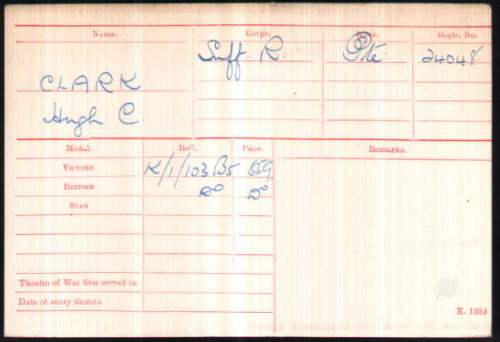 Name. Corps. Rank. Regtl. No.
CLARK Suff. R. Pte. 24048
Hugh C.
Medal. Roll. Page. Remarks.
VICTORY K/1/103 B5 559.
BRITISH Do Do
STAR
Theatre of War first served in
Date of entry therein
K. 1380